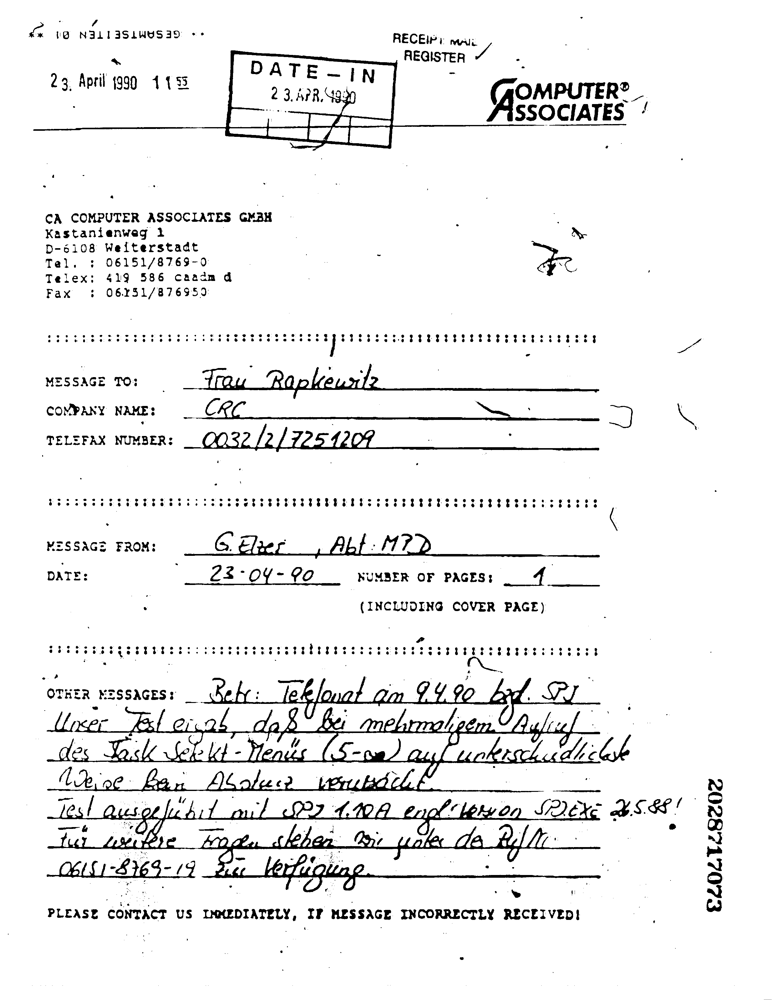 ** GESAMTSEITEN 01 **
RECEIPT MAIL
REGISTER
23. April 1990 11 55
DATE-IN
23. APR. 1990
COMPUTER®
ASSOCIATES
CA COMPUTER ASSOCIATES GMBH
Kastanienweg 1
D-6108 Weiterstadt
Tel. : 06151/8769-0
Telex: 419 586 caadm d
Fax : 06151/876950
MESSAGE TO: Frau Rapkewitz
COMPANY NAME: CRC
TELEFAX NUMBER: 0032/2/7251209
MESSAGE FROM: G. Elzer, Abt: MPD
DATE: 23-04-90 NUMBER OF PAGES: 1
(INCLUDING COVER PAGE)
OTHER MESSAGES: Betr: Telefonat am 9.4.90 bzgl. SPJ
Unser Test ergab, daß bei mehrmaligem Aufruf
des Task Selekt-Menüs (5-∞) auf unterschiedlichste
Weise kein Absturz verursacht.
Test ausgeführt mit SPJ 1.10A engl. Version SPJ.EXE 26.5.88!
Für weitere Fragen stehen wir unter der Ruf Nr.
06151-8769-19 zur Verfügung.
PLEASE CONTACT US IMMEDIATELY, IF MESSAGE INCORRECTLY RECEIVED!
2028717073